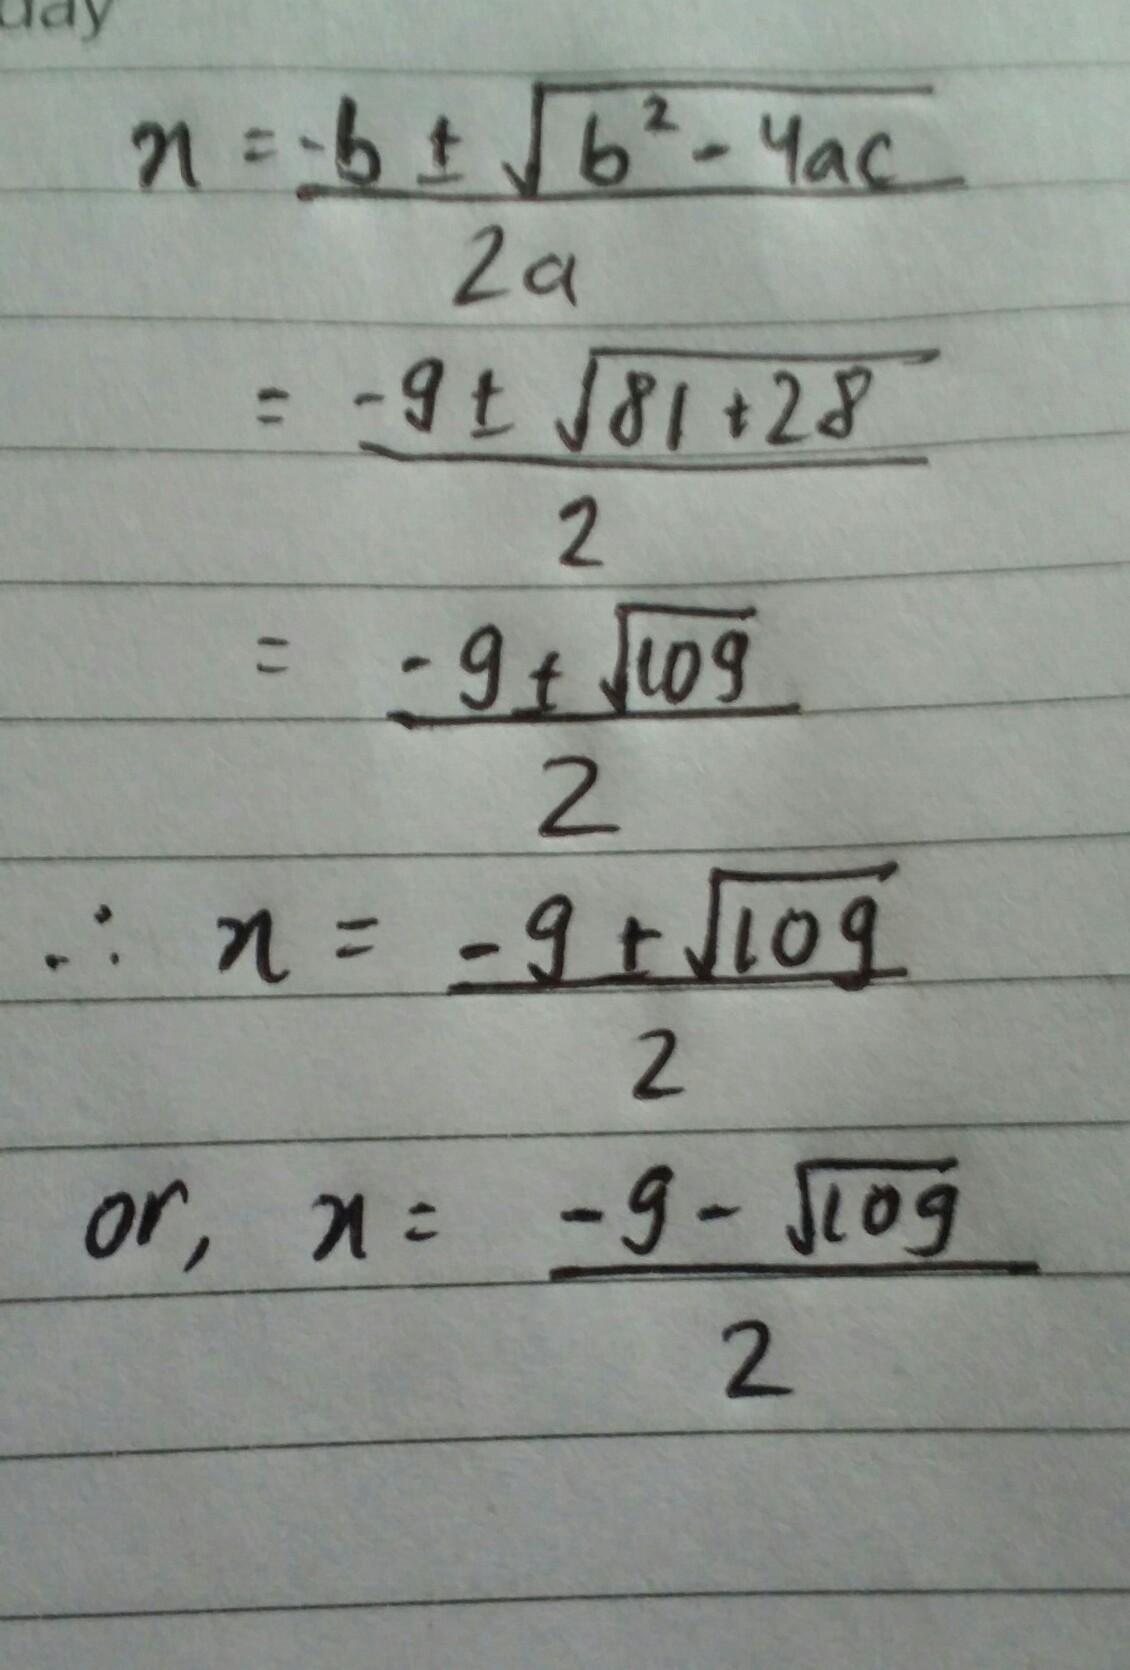 day
x = -b ± √(b² - 4ac) / 2a
= -9 ± √(81 + 28) / 2
= -9 ± √109 / 2
∴ x = -9 + √109 / 2
or, x = -9 - √109 / 2